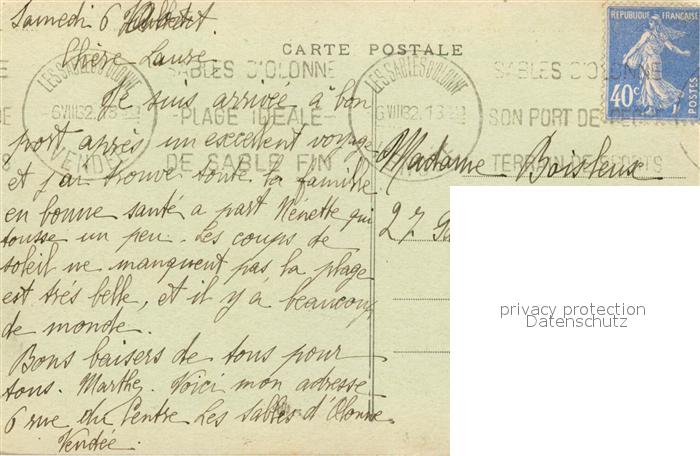 Samedi 6
RÉPUBLIQUE FRANÇAISE
Chère Laure.
CARTE POSTALE
40c
POSTES
LES SABLES D'OLONNE
6 VIII 32
VENDÉE
SABLES D'OLONNE
-PLAGE IDÉALE-
DE SABLE FIN
LES SABLES D'OLONNE
6 VIII 32
SABLES D'OLONNE
SON PORT DE
TERRAIN DE SPORTS
Je suis arrivée à bon
port après un excellent voyage
et j'ai trouvé toute la famille
en bonne santé a part Nénette qui
tousse un peu. Les coups de
soleil ne manquent pas la plage
est trés belle, et il y'a beaucoup
de monde.
Bons baisers de tous pour
tous. Marthe. Voici mon adresse
6 rue du Centre Les Sables d'Olonne
Vendée.
Madame Boisleux
27
privacy protection
Datenschutz